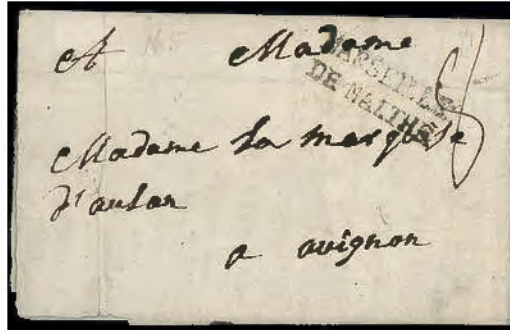 A Madame
MARSEILLE
DE MALTHE
Madame La marquise
d'aulan
a avignon